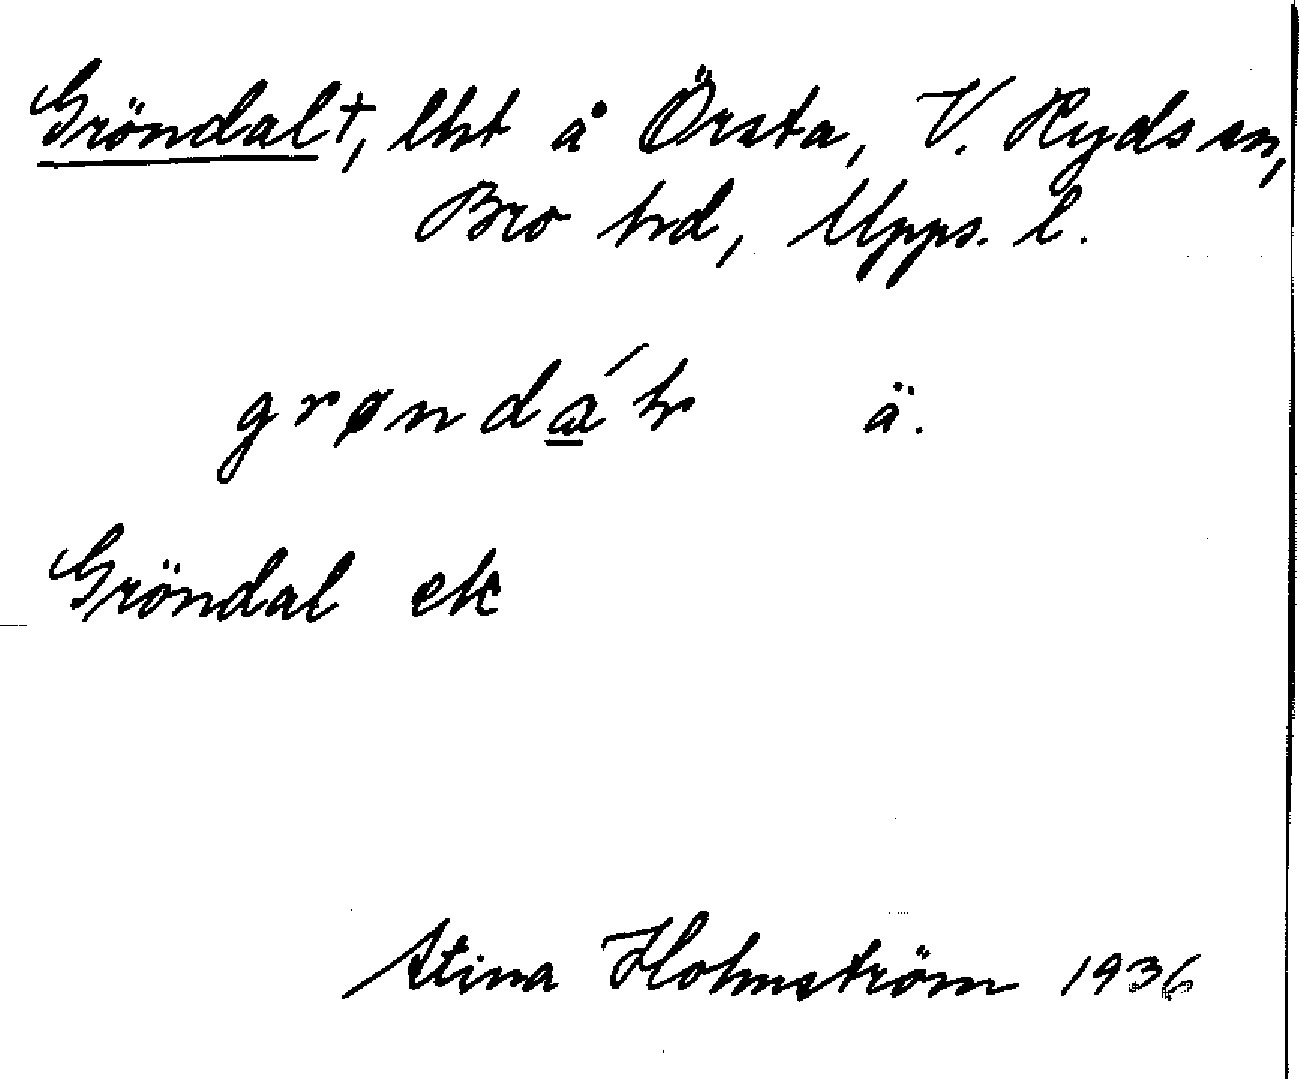 Gröndal†, lht å Örsta, V. Ryds sn,
Bro hd, Upps. l.
grøndáłr ä.
Gröndal ek
Stina Holmström 1936